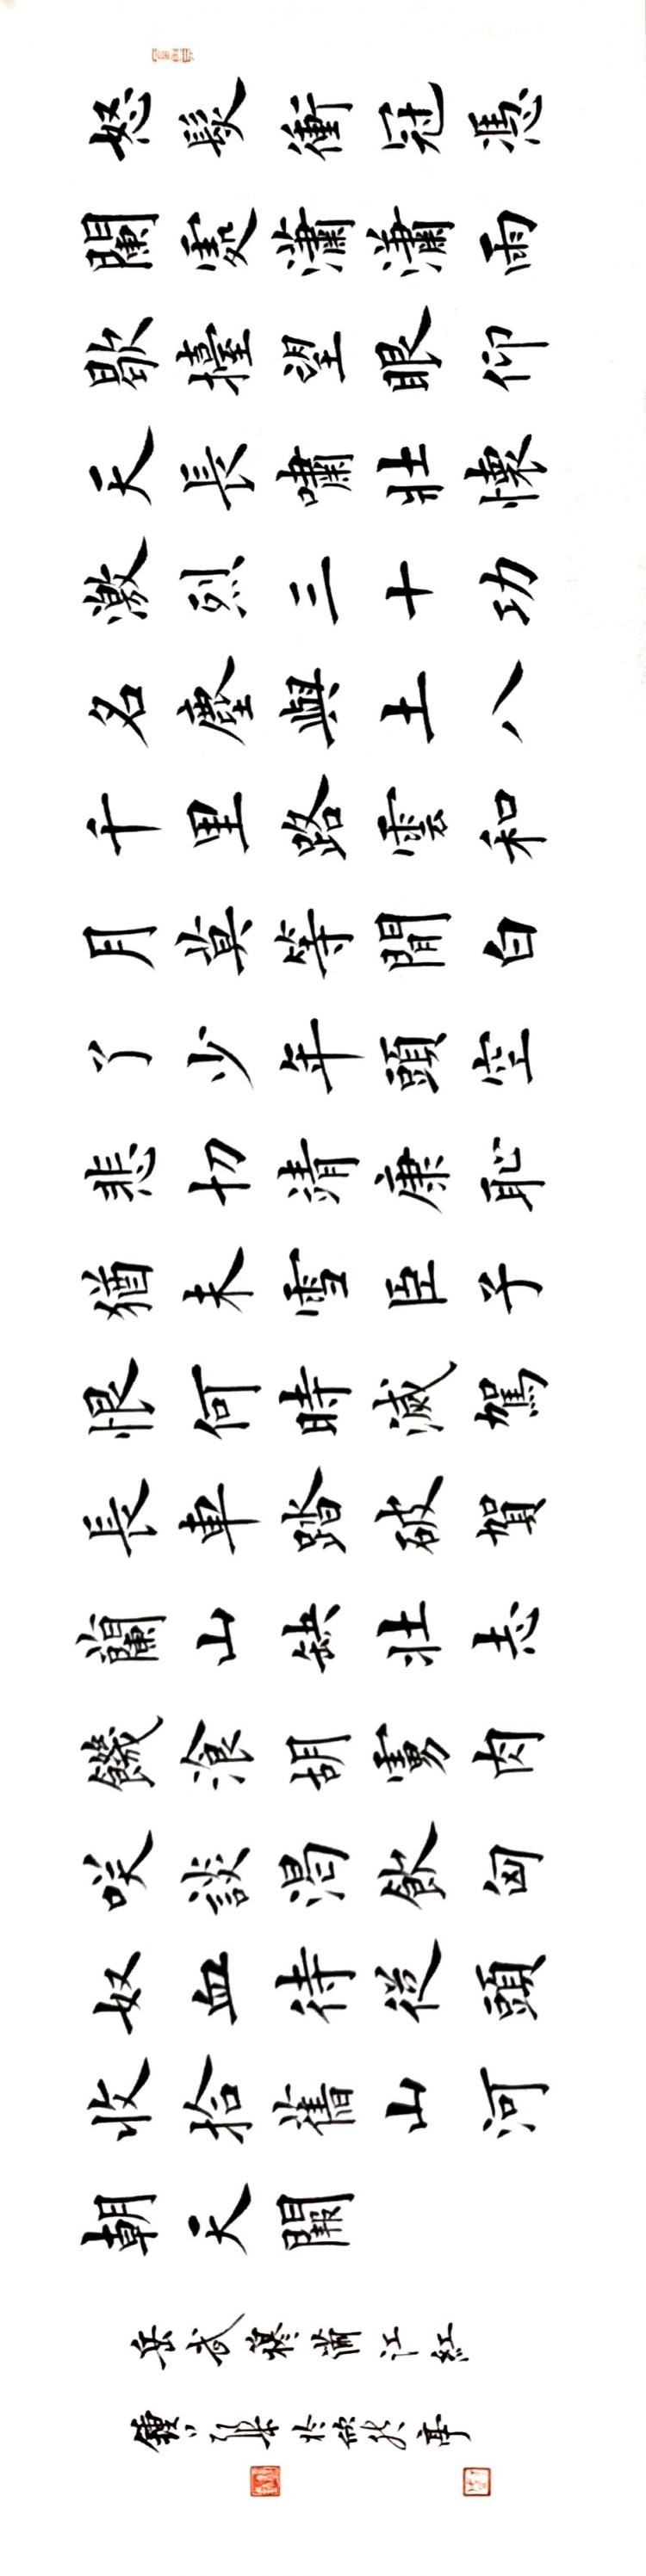 怒髮衝冠馮
闌處瀟瀟雨
歇擡望眼仰
天長嘯壯懷
激烈三十功
名塵與土八
千里路雲和
月莫等閒白
了少年頭空
悲切清康恥
猶未雪臣子
恨何時滅駕
長車踏破賀
蘭山缺壯志
饑湌胡虜肉
咲談渴飲匈
奴血待從頭
收拾舊山河
朝天闕
岳武穆滿江紅
於欣然亭